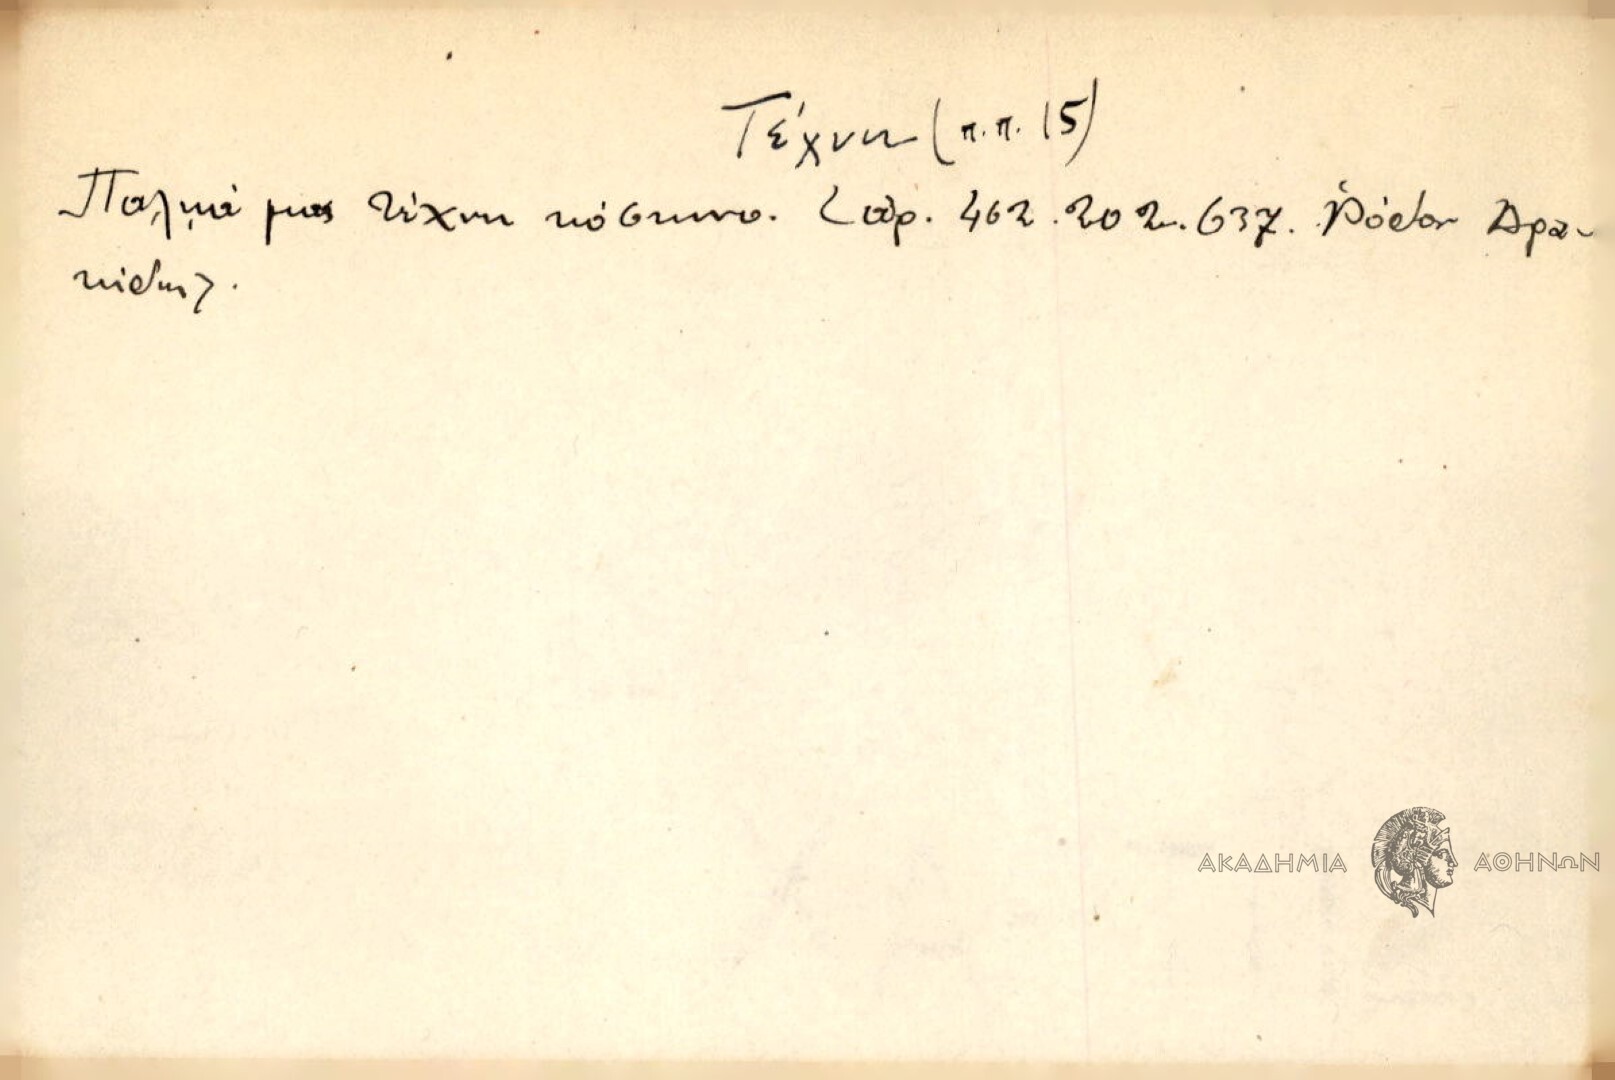 Τέχνη (π.π. 15)
Παλῃά μας τέχνη κόσκινο. Λαρ. 462. 202. 637. Ῥόδον Δρα-
κίδης.
ΑΚΑΔΗΜΙΑ ΑΘΗΝΩΝ